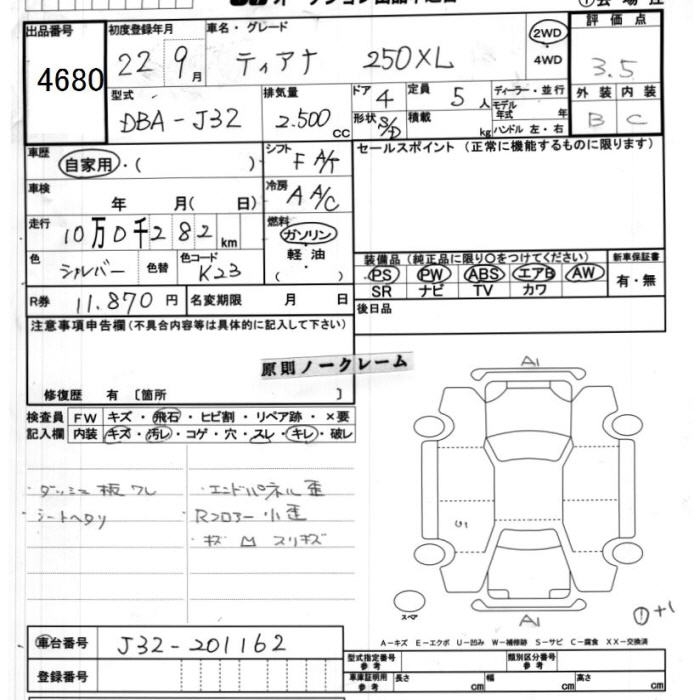 出品番号
4680
初度登録年月
22 9月
車名・グレード
ティアナ 250XL
2WD
4WD
評価点
3.5
外装 内装
B C
型式
DBA-J32
排気量
2.500cc
ドア 4
形状 S/D
定員 5人
積載 kg
ディーラー・並行
モデル年式 年
ハンドル 左・右
車歴
自家用・( )
シフト
F A/T
セールスポイント (正常に機能するものに限ります)
車検
年 月( 日)
冷房
A A/C
走行
10万0千282km
燃料
ガソリン
軽油
( )
色
シルバー
色替
色コード
K23
装備品 (純正品に限り○をつけてください)
PS PW ABS エアB AW
SR ナビ TV カワ
新車保証書
有・無
R券 11.870円
名変期限 月 日
後日品
注意事項申告欄(不具合内容等は具体的に記入して下さい)
原則ノークレーム
修復歴 有 〔箇所 〕
検査員記入欄
FW キズ・飛石・ヒビ割・リペア跡・×要
内装 キズ・汚レ・コゲ・穴・スレ・キレ・破レ
・エンドパネル歪
シートヘタリ
Rフロアー小歪
・キズ 凹 スリキズ
A1
A1
スペア
+1
A-キズ E-エクボ U-凹み W-補修跡 S-サビ C-腐食 XX-交換済
車台番号
J32-201162
登録番号
型式指定番号参考
類別区分番号参考
車庫証明用参考
長さ cm
幅 cm
高さ cm